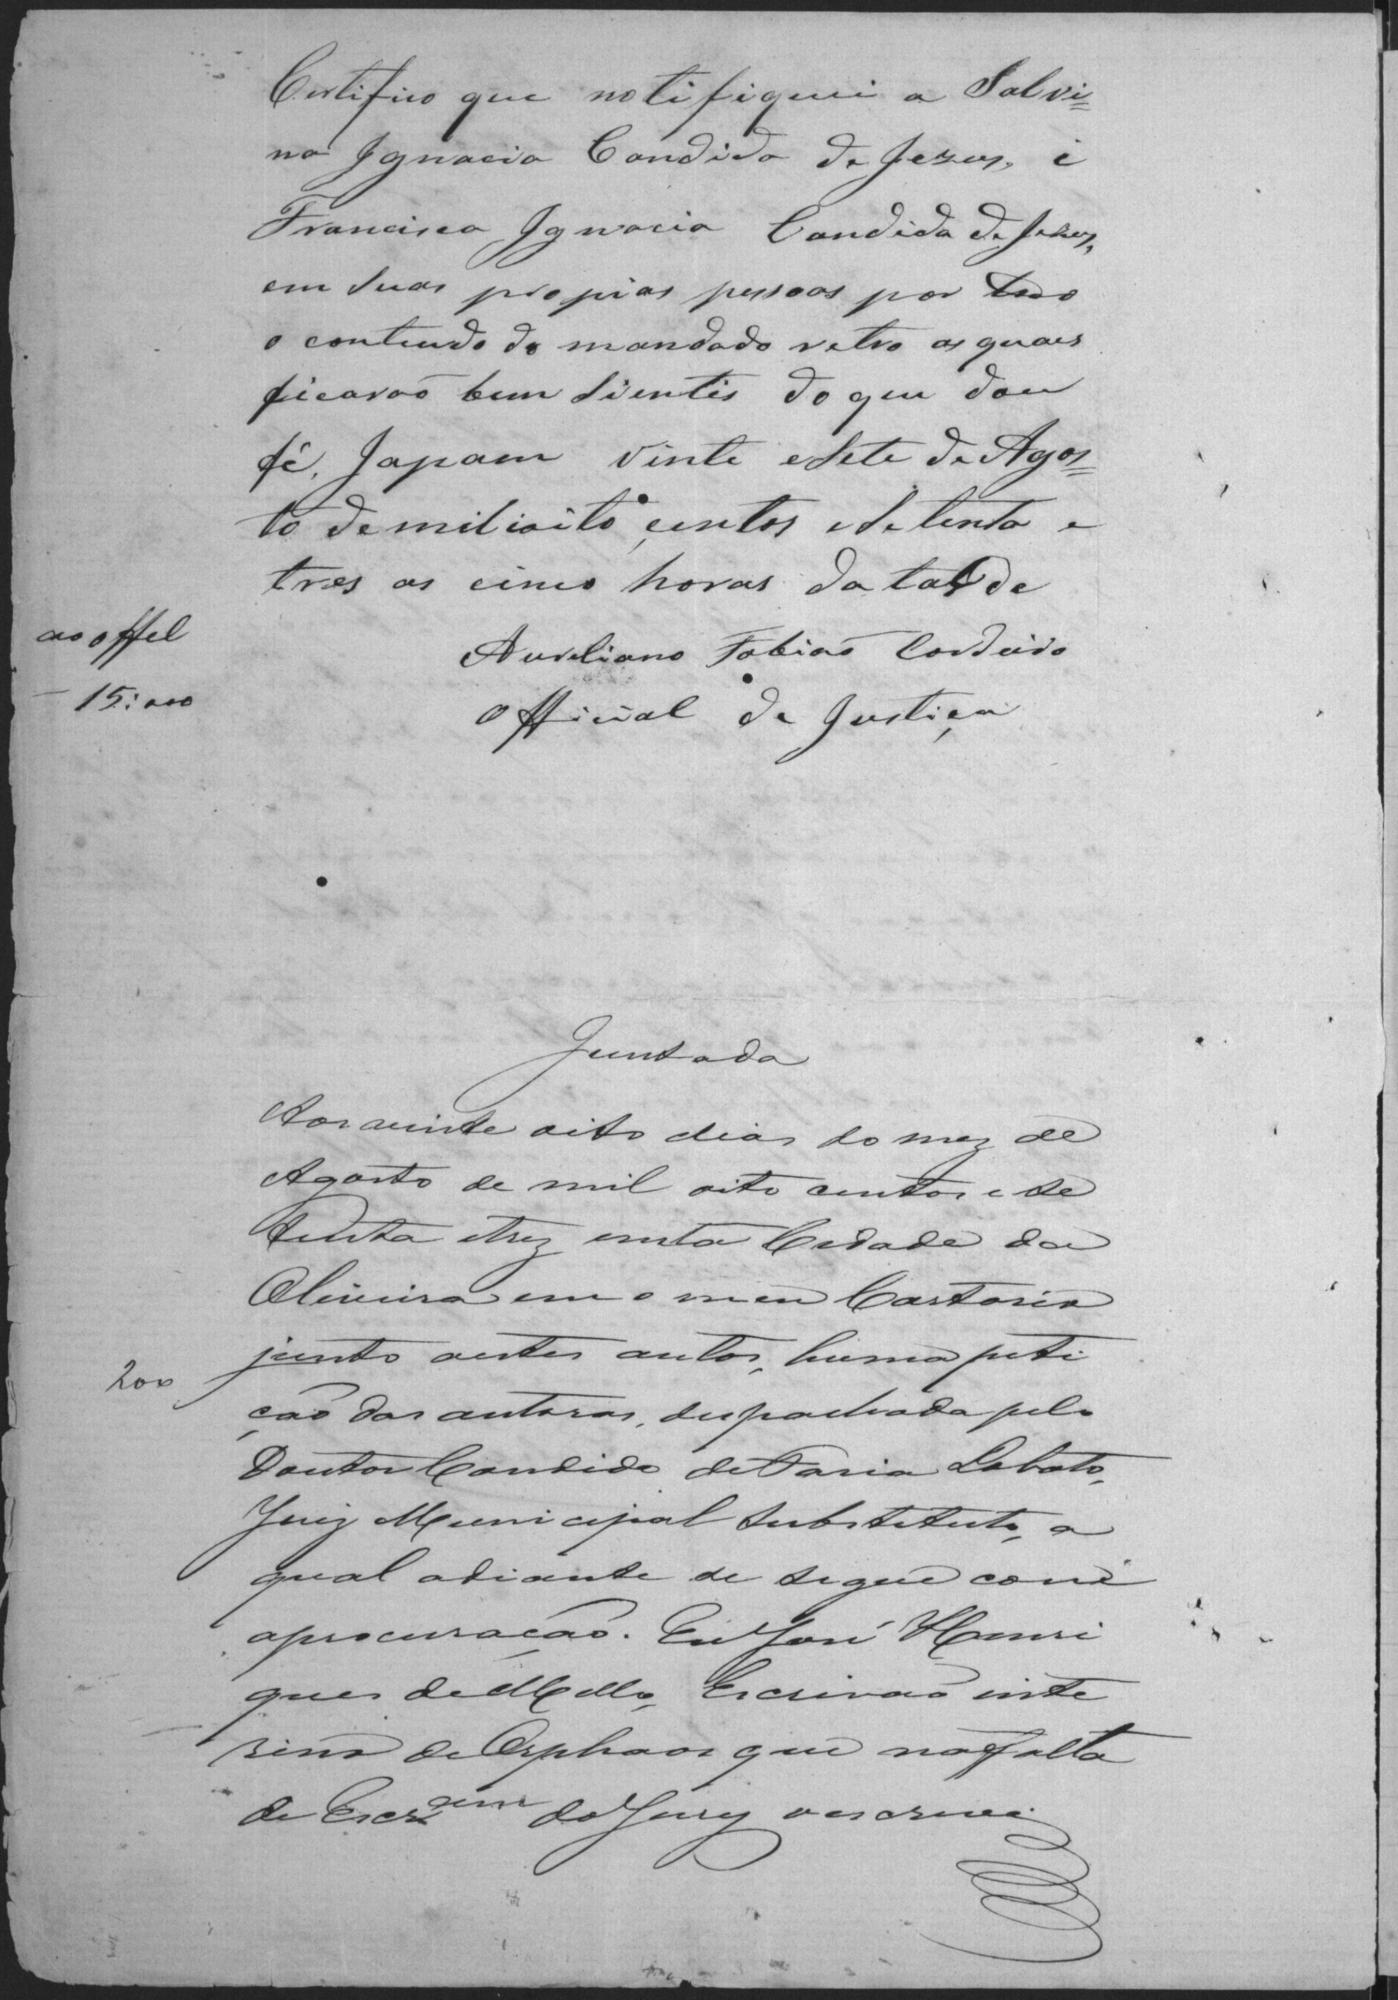 Certifico que notifiquei a Salvi=
na Ignacia Candida de Jezus, e
Francisca Ignacia Candida de Jezus,
em suas propias pessoas por tudo
o conteudo do mandado retro as quaes
ficaraõ bem sientes do que dou
fé, Japam vinte e sete de Agos=
to de mil oito centos e setenta e
tres as cinco horas da tarde
ao offel
Aureliano Tobias Cordeiro
15:000
Official de Justiça
Juntada
Aos vinte oito dias do mez de
Agosto de mil oito centos e se
tenta e trez nesta Cidade da
Oliveira em o meu Cartorio
junto aestes autos, huma peti
200
ção das autoras, despachada pelo
Doutor Candido de Faria Lobato,
Juiz Municipal substituto, a
qual adiante se segue com
aprocuração. Eu José Henri
ques de Mello, Escrivaõ inte
rino de Orphaos que na falta
de Escr do Jury o escrevi